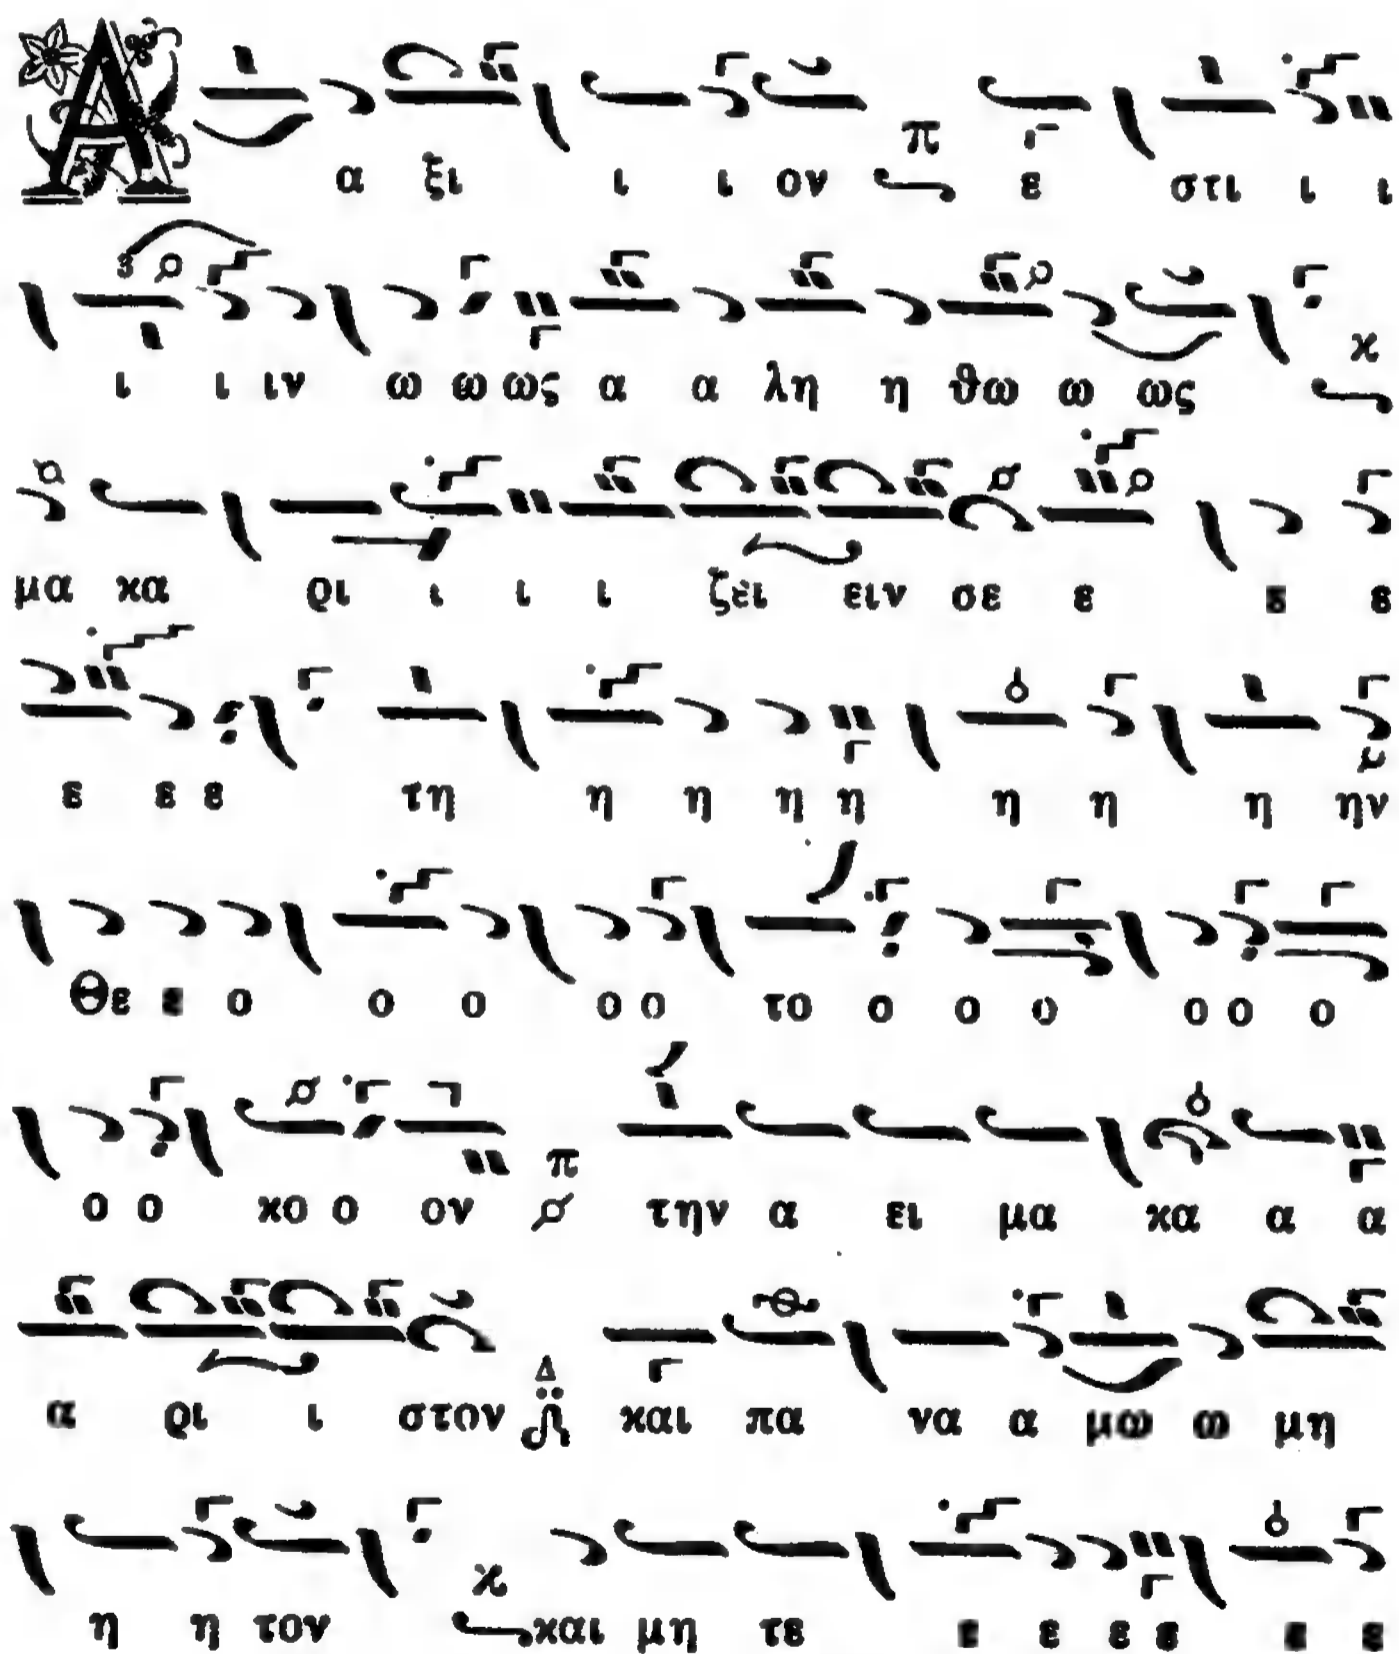 Α α ξι ι ι ον π ε στι ι ι
ι ι ιν ω ω ως α α λη η θω ω ως κ
μα κα ρι ι ι ι ζει ειν σε ε ε ε
ε ε ε τη η η η η η η η ην
Θε ε ο ο ο ο ο το ο ο ο ο ο ο
ο ο κο ο ον π την α ει μα κα α α
α ρι ι στον Δ και πα να α μω ω μη
η η τον κ και μη τε ε ε ε ε ε ε